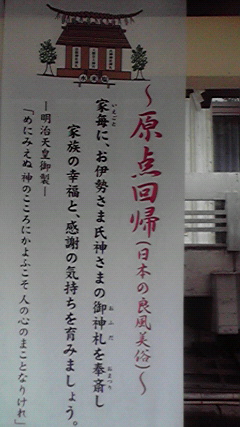 ～原点回帰(日本の良風美俗)～
家毎に、お伊勢さま氏神さまの御神札を奉斎し
家族の幸福と、感謝の気持ちを育みましょう。
―明治天皇御製―
「めにみえぬ神のこころにかよふこそ人の心のまことなりけれ」